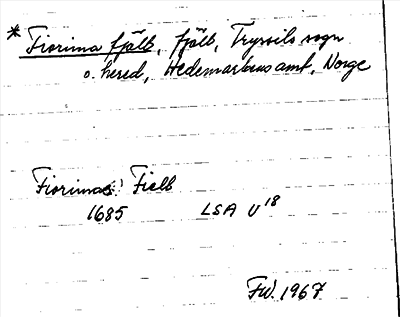 * Fiorima fjäll, fjäll, Trysils sogn
o. herred, Hedemarkens amt, Norge
Fiorimas Fiell
1685 LSA U18
FW. 1967